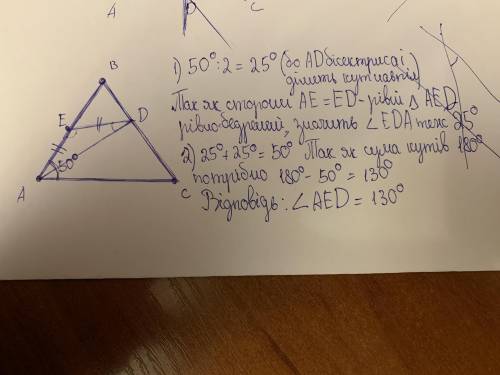 A
D
C
B
E
D
50°
A
C
1) 50°:2 = 25° (бо AD бісектриса і
ділить кут навпіл)
Так як сторони AE = ED - рівні △ AED
рівнобедрений, значить ∠EDA теж 25°
2) 25°+25° = 50° Так як сума кутів 180°
потрібно 180° - 50° = 130°
Відповідь: ∠AED = 130°